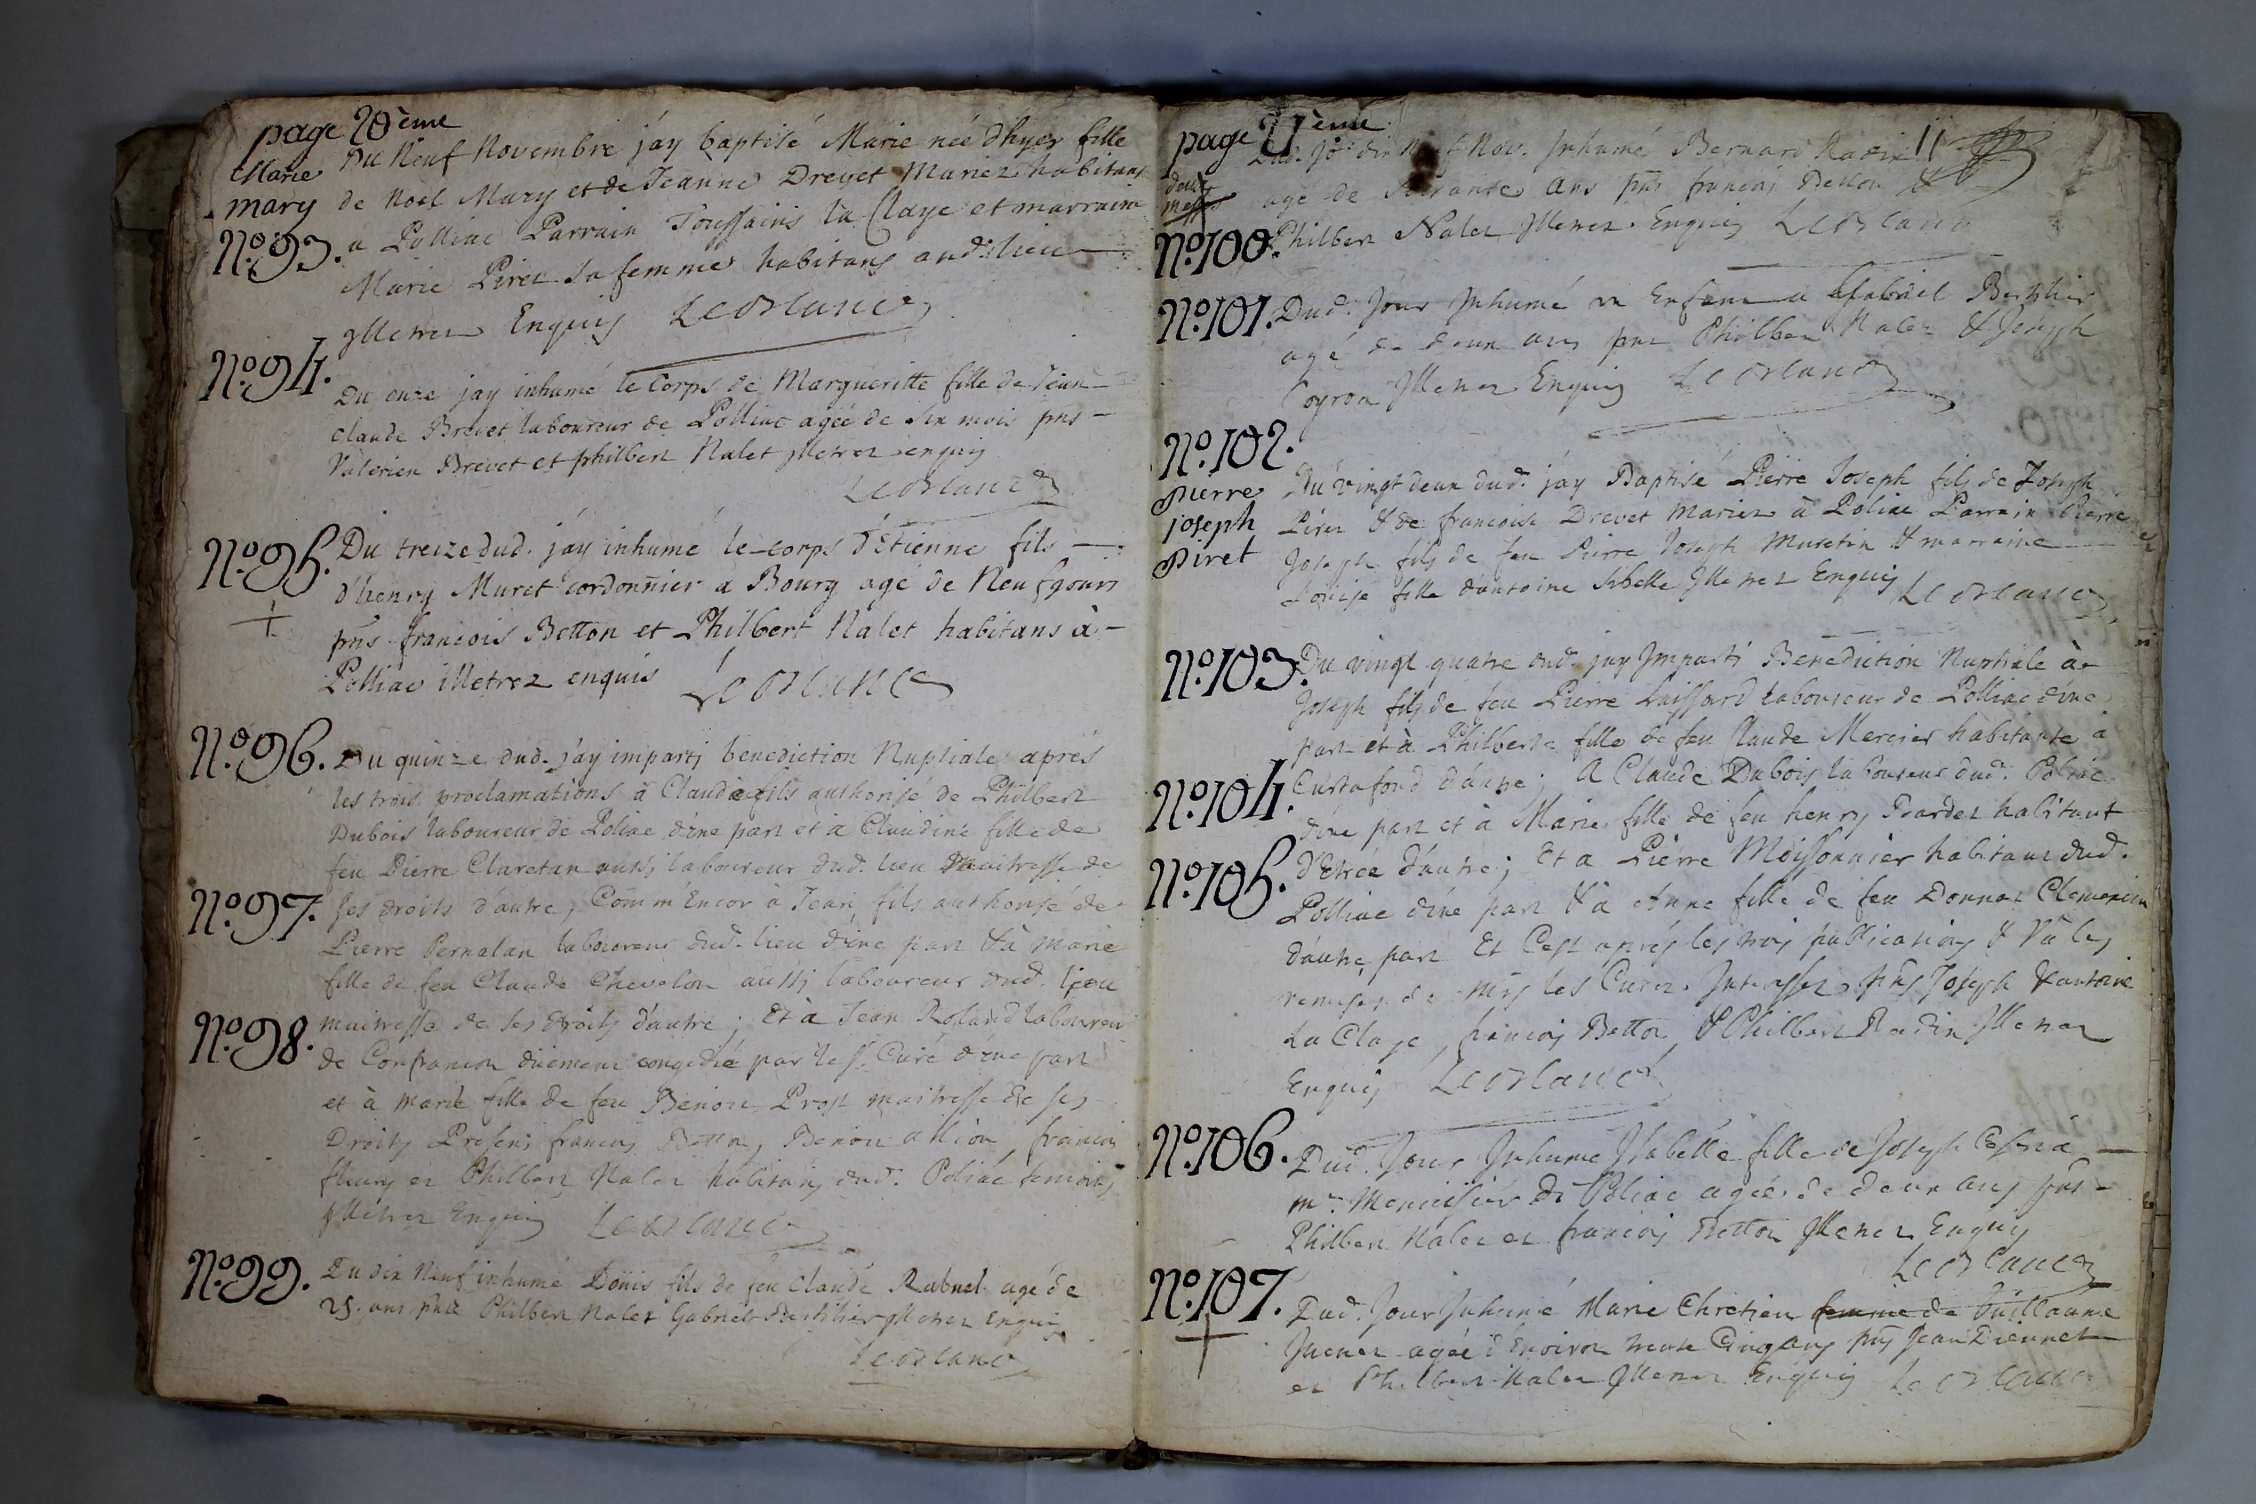 page 20ème
Marie Du Neuf Novembre jáy baptisé Marie née d'hyer fille
mary de Noel Mary et de Jeanne Drevet Mariez habitans
N.º93. a Polliac Parrain Toussains la Claye et marraine
Marie Piret sa femme habitans aud. lieu
Illetrez Enquis Leorlanc
N.º94.
Du onze jay inhumé le Corps de Margueritte fille de Jean
claude Brevet laboureur de Polliac agée de six mois pns
Valerien Brevet et philbert Nalet Illetrez enquis
Leorlanc
N.º95. Du treize dud. jáy inhumé le corps d'Etienne fils
d'henry Muret cordonnier a Bourg agé de Neuf jours
pns francois Betton et Philbert Nalet habitans à
Polliac illetrez enquis Leorlanc
N.º96. Du quinze dud. j'ay imparti benediction Nuptiale aprés
les trois proclamations a Claude fils authorisé de Philbert
Dubois laboureur de Poliac d'une part et a Claudine fille de
feu Pierre Claretan aussi laboureur dud. lieu maitresse de
N.º97. ses droits d'autre, Comm'Encor à Jean fils authorisé de
Pierre Pernalan laboureur dud. lieu d'une part & à Marie
fille de feu Claude Chevelon aussi laboureur dud. lieu
N.º98. maitresse de ses droits d'autre; Et à Jean Roland laboureur
de Confrancon düement congedié par le s. Curé d'une part
et à marie fille de feu Benoit Prost maitresse de ses
Droits Presens francois Betton, Benoit allion, francois
fleury et Philbert Nalet habitans dud. Poliac temoins
Illetrez Enquis Leorlanc
N.º99. Du dix Neuf inhumé Donis fils de feu Claude Rabuel agé de
25. ans pns Philbert Nalet Gabriel Berthilier Illetrez Enquis
Leorlanc
page 21ème
Dud. Jo. dix Neuf Nov. Inhumé Bernard 11
agé de ans pns francois Betton &
N.º100. Philbert Nalet Illetrez Enquis Leorlanc
N.º101. Dud. Jour Inhumé un Enfant a Gabriel
agé de deux ans pns Philbert Nalet & Joseph
Coyron Illetrez Enquis Leorlanc
N.º102.
Pierre Du vingt deux dud. jáy Baptisé Pierre Joseph fils de Joseph
joseph Piret & de francoise Drevet Mariez à Poliac Parrain Pierre
Piret Joseph fils de feu Pierre Joseph Musetin & marraine
Louise fille d'antoine Sibelle Illetrez Enquis Leorlanc
N.º103. Du vingt quatre dud. jay Imparti Benediction Nuptiale à
Joseph fils de feu Pierre laboureur de Polliac d'une
part et à Philberte fille de feu Claude Mercier habitante a
N.º104. Curtafond d'autre; A Claude Dubois laboureur dud. Poliac
d'une part et à Marie fille de feu henry Bardet habitant
N.º105. d'Etrée d'autre; Et a Pierre Moissonnier habitant dud.
Polliac d'une part & à Anne fille de feu Donnat
d'autre part Et C'est aprés les trois publications & Vu les
remises de mrs les Curez Interessez, pns Joseph & antoine
La Claye, francois Betton & Philbert Radix Illetrez
Enquis Leorlanc
N.º106. Dud. Jour Inhumé Isabelle fille de Joseph
mr. Menuisier de Poliac agée de deux ans pns
Philbert Nalet et francois Betton Illetrez Enquis
Leorlanc
N.º107. Dud. Jour Inhumé Marie Chretien femme de Guillaume
agée d'Environ trente Cinq ans pns Jean
et Philbert Nalet Illetrez Enquis Leorlanc